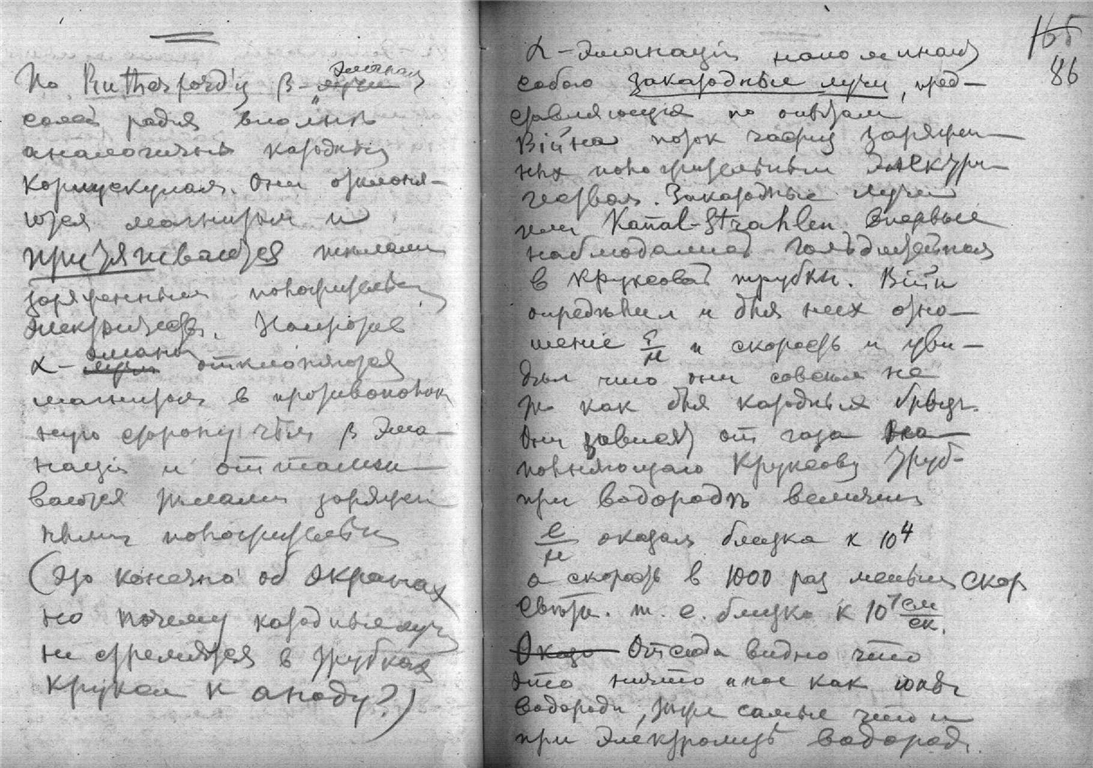 По Rutherford'у β-лучи эманац
солей радия вполнѣ
аналогичны катодным
корпускулам. Они отклоня-
ются магнитом и
притягиваются тѣлами
заряженными положительн
электричеств. Напротив
α-лучи эманац отклоняются
магнитом в противополож
ную сторону чѣм β эма-
нація и отталки-
ваются тѣлами заряжен
ными положительн
(Это конечно об экранах
но почему катодные луч
не стремятся в трубках
Крукса к аноду?)
165
86
α-эманація напоминают
собою закатодные лучи, пред-
ставляющія по опытам
Війна поток частиц заряжен-
ных положительным электри-
чеством. Закатодные лучи
или Kanal-Strahlen впервые
наблюдались Гольдштейном
в Круксовой трубкѣ. Війн
опредѣлил и для них отно-
шеніе е/м и скорость и уви-
дѣл что они совсѣм не
то как для катодных
Они зависят от газа на-
полняющаго Круксову Труб-
при водородѣ величина
е/м оказал близка к 10⁴
а скорость в 1000 раз меньш скор
свѣта. т. е. близко к 10⁷ см/сек.
Оказа Отсюда видно что
это ничто иное как іоны
водорода, тѣ же самые что и
при электролизѣ водород.